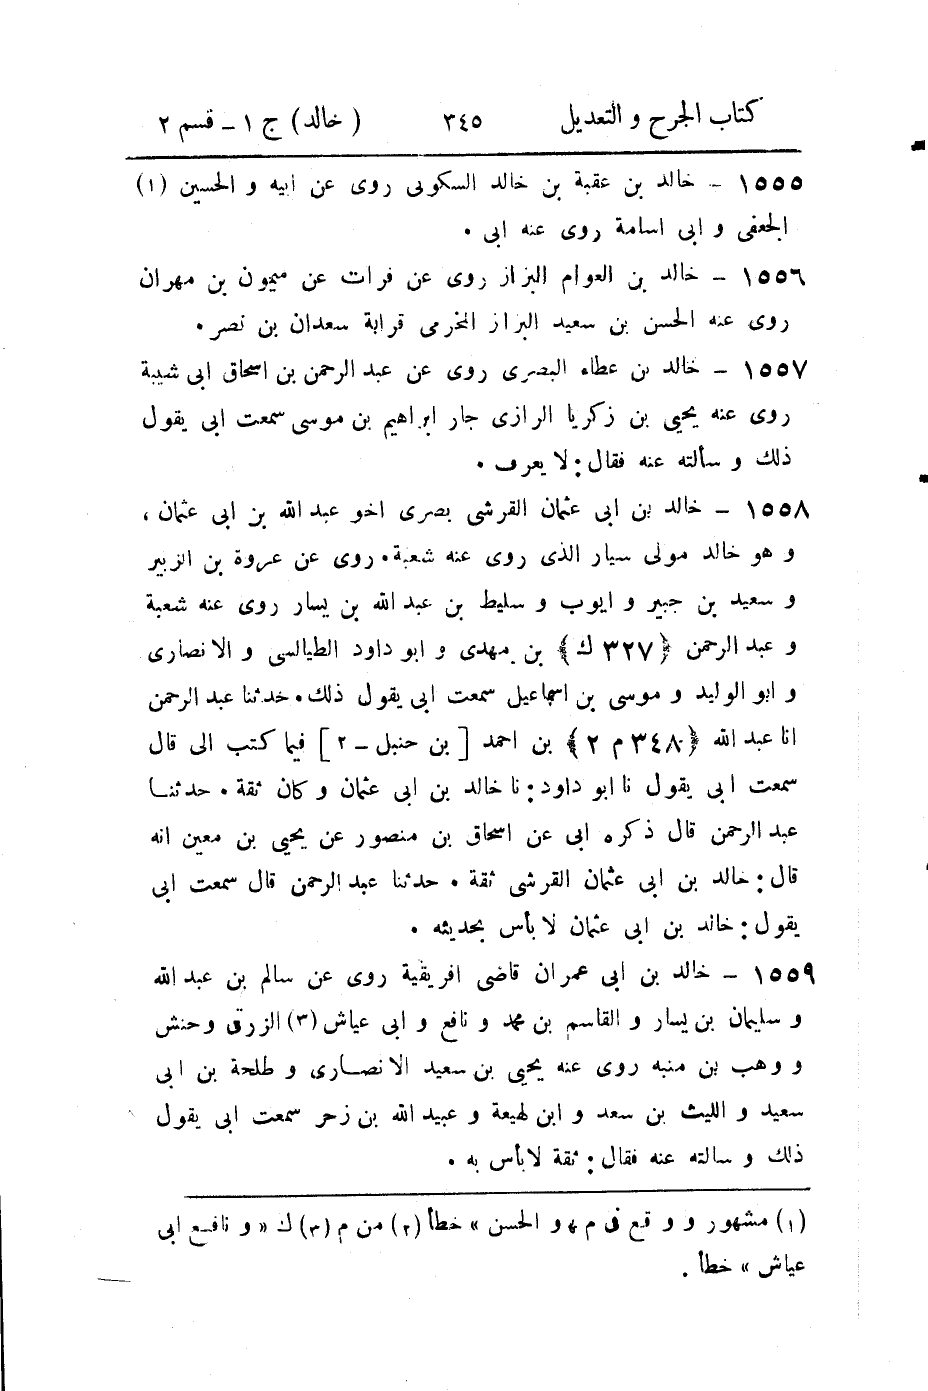 كتاب الجرح و التعديل ٣٤٥ ( خالد ) ج ١ – قسم ٢
١٥٥٥ – خالد بن عقبة بن خالد السكونى روى عن ابيه و الحسين (١)
الجعفى و ابى اسامة روى عنه ابى .
١٥٥٦ – خالد بن العوام البزاز روى عن فرات عن ميمون بن مهران
روى عنه الحسن بن سعيد البزاز المخرمى قرابة سعدان بن نصر .
١٥٥٧ – خالد بن عطاء البصرى روى عن عبد الرحمن بن اسحاق ابى شيبة
روى عنه يحيى بن زكريا الرازى جار ابراهيم بن موسى سمعت ابى يقول
ذلك و سألته عنه فقال : لا يعرف .
١٥٥٨ – خالد بن ابى عثمان القرشى بصرى اخو عبد الله بن ابى عثمان ،
و هو خالد مولى سيار الذى روى عنه شعبة . روى عن عروة بن الزبير
و سعيد بن جبير و ايوب و سليط بن عبد الله بن يسار روى عنه شعبة
و عبد الرحمن ﴿٣٢٧ ك﴾ بن مهدى و ابو داود الطيالسى و الانصارى
و ابو الوليد و موسى بن اسماعيل سمعت ابى يقول ذلك . حدثنا عبد الرحمن
انا عبد الله ﴿٣٤٨ م ٢﴾ بن احمد [ بن حنبل – ٢ ] فيما كتب الى قال
سمعت ابى يقول نا ابو داود : نا خالد بن ابى عثمان و كان ثقة . حدثنا
عبد الرحمن قال ذكره ابى عن اسحاق بن منصور عن يحيى بن معين انه
قال : خالد بن ابى عثمان القرشى ثقة . حدثنا عبد الرحمن قال سمعت ابى
يقول : خالد بن ابى عثمان لا بأس بحديثه .
١٥٥٩ – خالد بن ابى عمران قاضى افريقية روى عن سالم بن عبد الله
و سليمان بن يسار و القاسم بن محمد و نافع و ابى عياش (٣) الزرقى و حنش
و وهب بن منبه روى عنه يحيى بن سعيد الانصارى و طلحة بن ابى
سعيد و الليث بن سعد و ابن لهيعة و عبيد الله بن زحر سمعت ابى يقول
ذلك و سالته عنه فقال : ثقة لا بأس به .
(١) مشهور و وقع فى م « و الحسن » خطأ (٢) من م (٣) ك « و نافع ابى
عياش » خطأ .